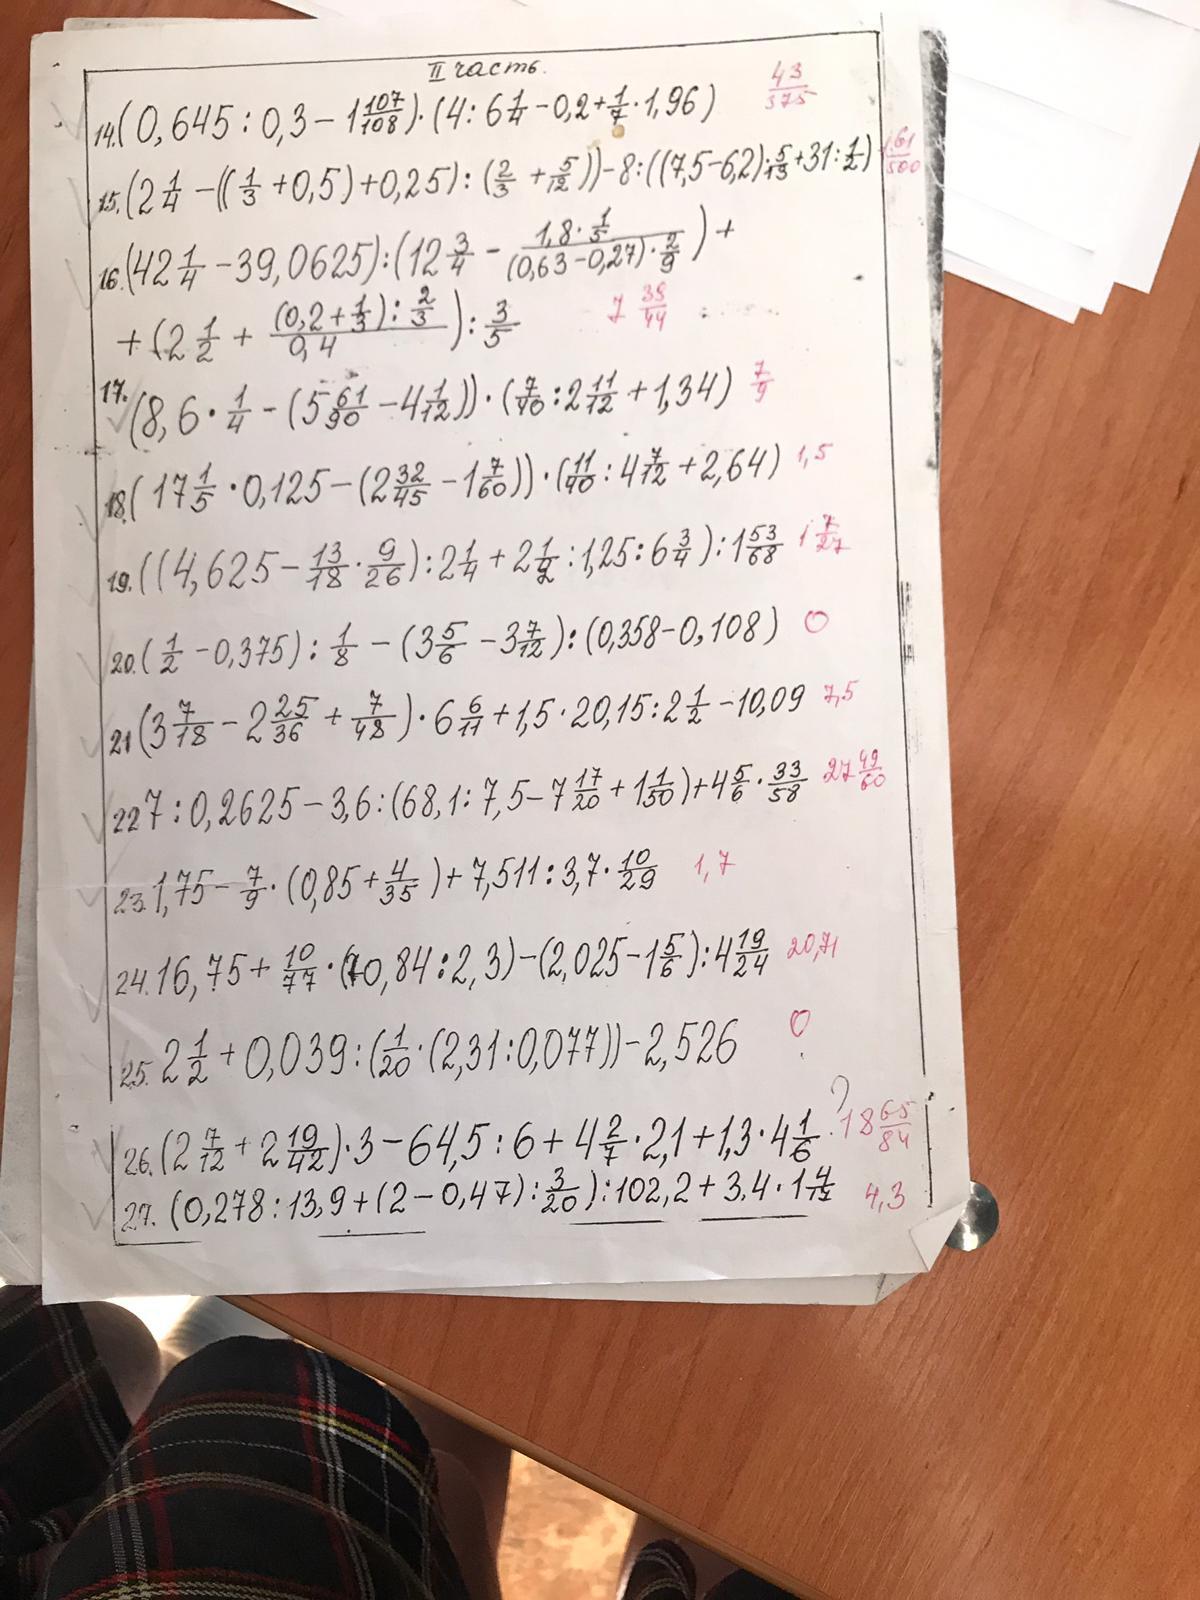 II часть.
14. (0,645 : 0,3 - 1 107/108) · (4 : 6 1/4 - 0,2 + 1/7 · 1,96) 43/375
15. (2 1/4 - ((1/3 + 0,5) + 0,25) : (2/3 + 5/12)) - 8 : ((7,5 - 6,2) : 5/13 + 31 : 1/2) 1 61/500
16. (42 1/4 - 39,0625) : (12 3/4 - (1,8 · 1/5)/((0,63 - 0,27) · 2/9)) +
+ (2 1/2 + ((0,2 + 1/3) : 2/3)/0,4) : 3/5 7 39/44
17. (8,6 · 1/4 - (5 61/90 - 4 1/12)) · (7/40 : 2 11/12 + 1,34) 7/9
18. (17 1/5 · 0,125 - (2 32/45 - 1 7/60)) · (11/40 : 4 7/12 + 2,64) 1,5
19. ((4,625 - 13/18 · 9/26) : 2 1/4 + 2 1/2 : 1,25 : 6 3/4) : 1 53/68 1 7/27
20. (1/2 - 0,375) : 1/8 - (3 5/6 - 3 7/12) : (0,358 - 0,108) 0
21 (3 7/18 - 2 25/36 + 7/48) · 6 6/11 + 1,5 · 20,15 : 2 1/2 - 10,09 7,5
22 7 : 0,2625 - 3,6 : (68,1 : 7,5 - 7 17/20 + 1 1/50) + 4 5/6 · 33/58 27 49/60
23. 1,75 - 7/9 · (0,85 + 4/35) + 7,511 : 3,7 · 10/29 1,7
24. 16,75 + 10/77 · (70,84 : 2,3) - (2,025 - 1 5/6) : 4 19/24 20,71
25. 2 1/2 + 0,039 : (1/20 · (2,31 : 0,077)) - 2,526 0
26. (2 7/12 + 2 19/42) · 3 - 64,5 : 6 + 4 2/7 · 2,1 + 1,3 · 4 1/6 ? 18 65/84
27. (0,278 : 13,9 + (2 - 0,47) : 3/20) : 102,2 + 3,4 · 1 4,3